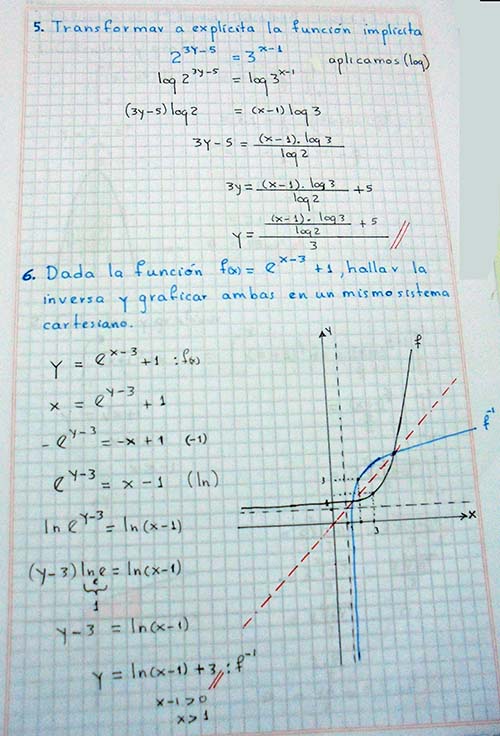 5. Transformar a explícita la función implícita
2^(3y-5) = 3^(x-1) aplicamos (log)
log 2^(3y-5) = log 3^(x-1)
(3y-5) log 2 = (x-1) log 3
3y-5 = (x-1). log 3 / log 2
3y = (x-1). log 3 / log 2 + 5
y = ((x-1). log 3 / log 2 + 5) / 3 //
6. Dada la función f(x) = e^(x-3) + 1, hallar la
inversa y graficar ambas en un mismo sistema
cartesiano.
y = e^(x-3) + 1 : f(x)
x = e^(y-3) + 1
-e^(y-3) = -x + 1 (-1)
e^(y-3) = x - 1 (ln)
ln e^(y-3) = ln(x-1)
(y-3) ln e = ln(x-1)
1
y-3 = ln(x-1)
y = ln(x-1) + 3 // : f^-1
x-1 > 0
x > 1
y
f
f^-1
3
1
1
3
x